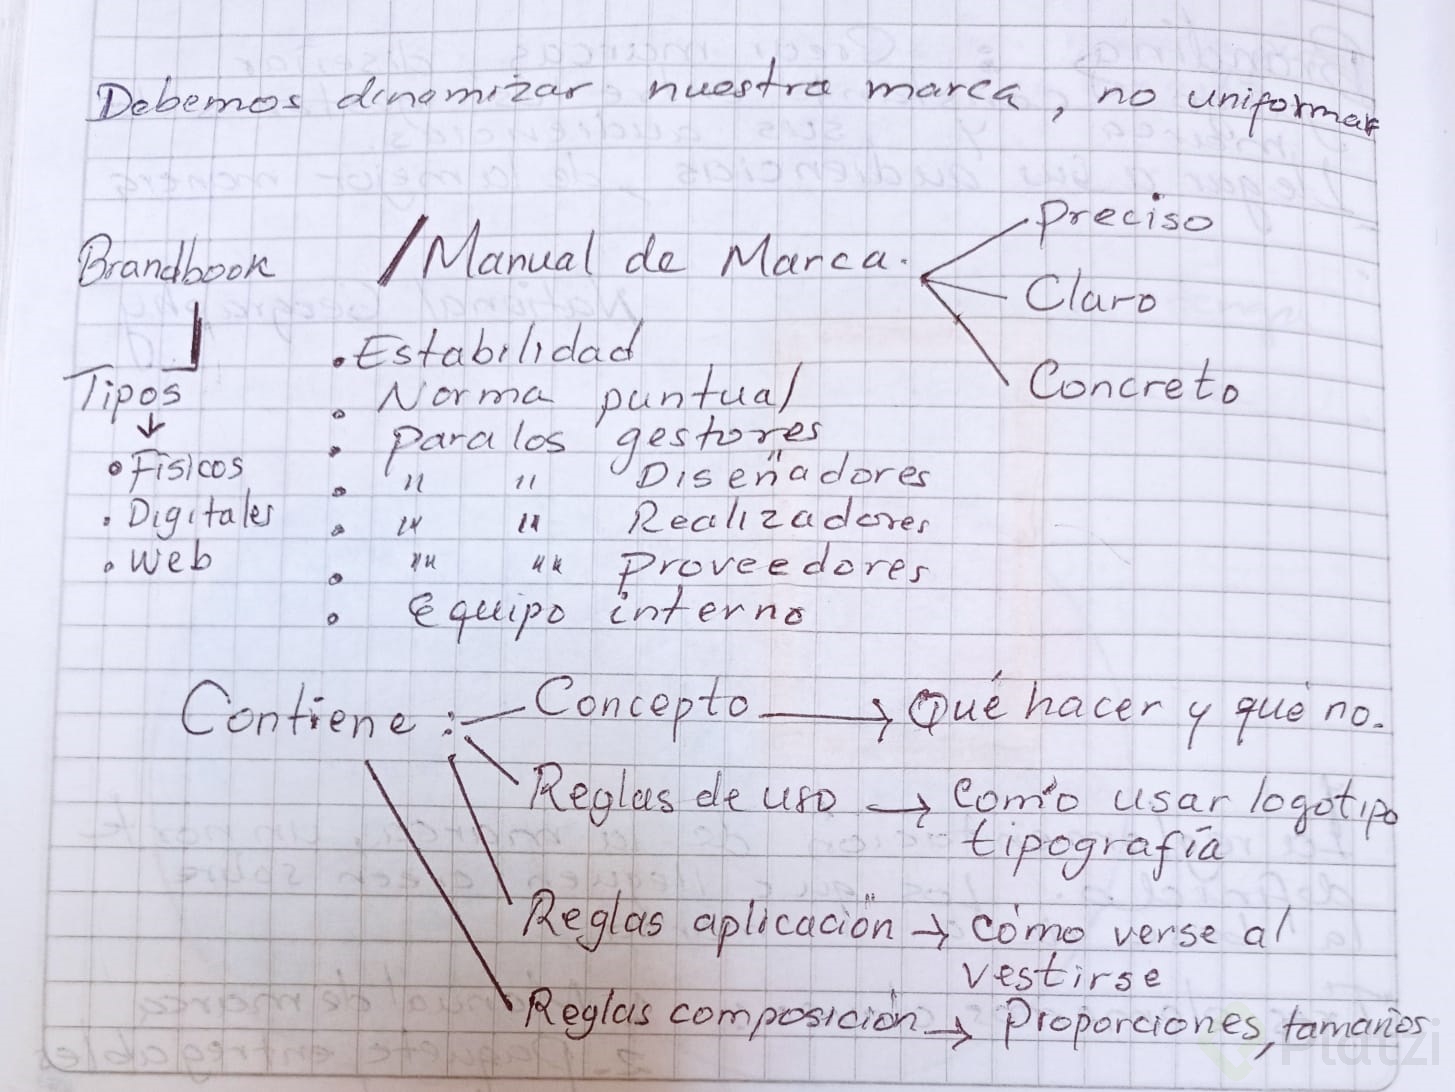 Debemos dinamizar nuestra marca, no uniformar
Brandbook / Manual de Marca.
Preciso
Claro
Concreto
Tipos
• Físicos
• Digitales
• Web
• Estabilidad
• Norma puntual
• para los gestores
• " " Diseñadores
• " " Realizadores
• " " Proveedores
• Equipo interno
Contiene :
Concepto → Qué hacer y qué no.
Reglas de uso → Cómo usar logotipo
tipografía
Reglas aplicación → cómo verse al
vestirse
Reglas composición → Proporciones, tamaños
Platzi